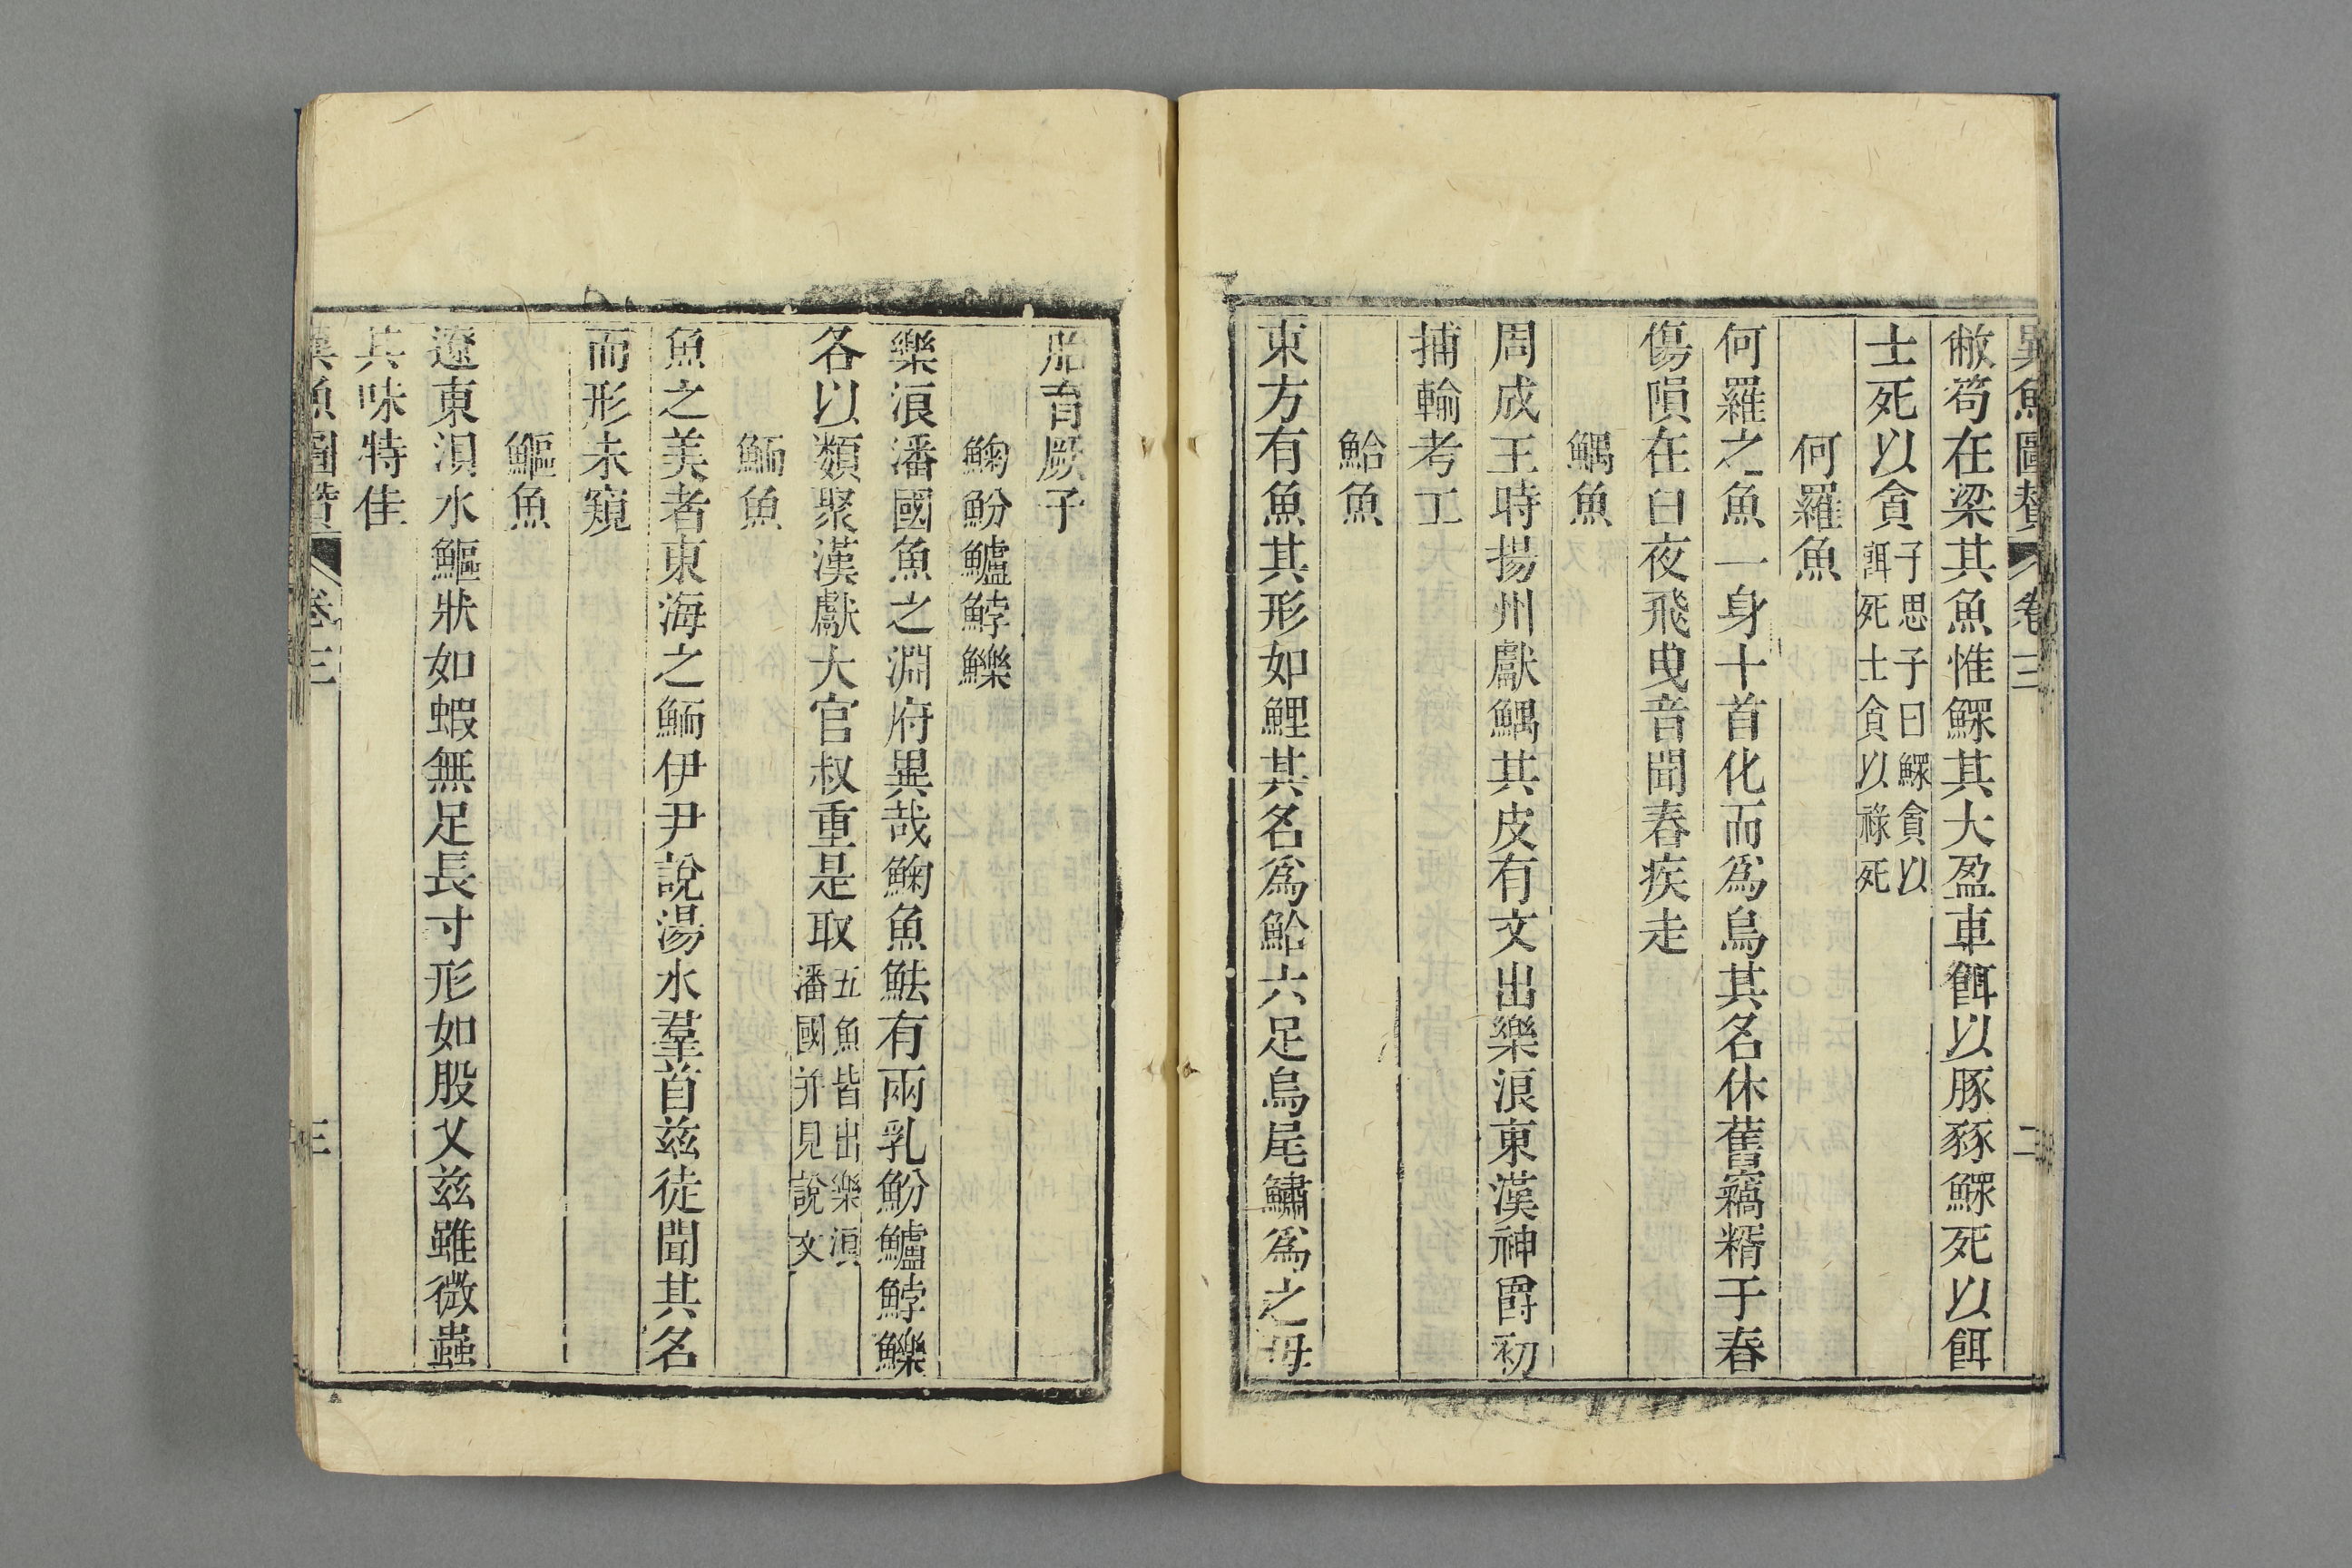 異魚圖贊 卷三 二
敝笱在梁其魚惟鰥其大盈車餌以豚豩鰥死以餌
士死以貪子思子曰鰥貪以
餌死士貪以祿死
何羅魚
何羅之魚一身十首化而爲鳥其名休舊竊糈于春
傷隕在臼夜飛曳音聞春疾走
鰅魚
周成王時揚州獻鰅其皮有文出樂浪東漢神爵初
捕輸考工
鮯魚
東方有魚其形如鯉其名爲鮯六足鳥尾鱐爲之母
胎育厥子
鯫魵鱸䱣鱳
樂浪潘國魚之淵府異哉䱡魚魼有兩乳魵鱸䱣鱳
各以類聚漢獻大官叔重是取五魚皆出樂浪
潘國并見說文
鮞魚
魚之美者東海之鮞伊尹說湯水羣首茲徒聞其名
而形未窺
鰸魚
遼東浿水鰸狀如蝦無足長寸形如股乂茲雖微蟲
其味特佳
異魚圖贊 卷三 三